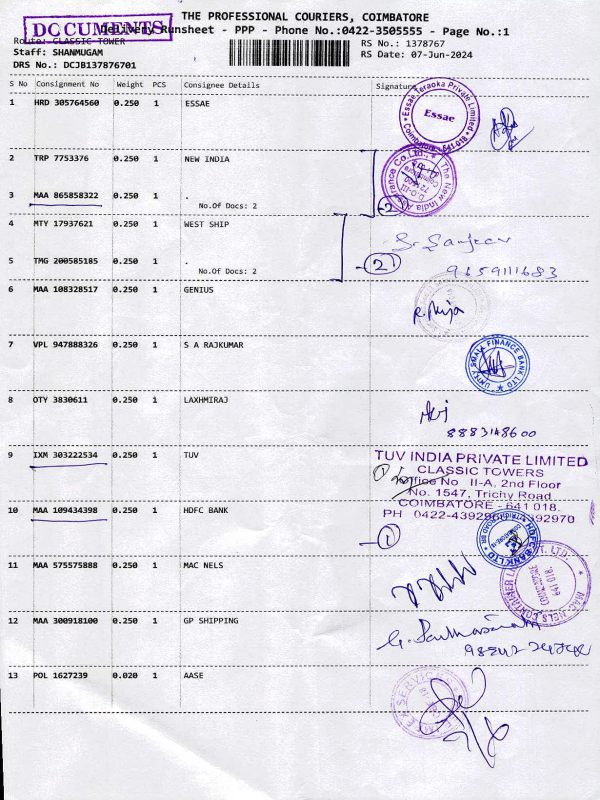 THE PROFESSIONAL COURIERS, COIMBATORE
DOCUMENTS
Delivery Runsheet - PPP - Phone No.:0422-3505555 - Page No.:1
Route: CLASSIC TOWER
RS No.: 1378767
Staff: SHANMUGAM
RS Date: 07-Jun-2024
DRS No.: DCJB137876701
S No Consignment No Weight PCS Consignee Details Signature
1 HRD 305764560 0.250 1 ESSAE
Essae Teraoka Private Limited
Essae
Coimbatore - 641 018
2 TRP 7753376 0.250 1 NEW INDIA
The New India Assurance Co. Ltd.
3 MAA 865858322 0.250 1 .
No.Of Docs: 2
2
4 MTY 17937621 0.250 1 WEST SHIP
Sr Sanjeev
5 TMG 200585185 0.250 1 .
No.Of Docs: 2
2
9659111683
6 MAA 108328517 0.250 1 GENIUS
7 VPL 947888326 0.250 1 S A RAJKUMAR
FINANCE BANK LTD
8 OTY 3830611 0.250 1 LAXHMIRAJ
8883148600
9 IXM 303222534 0.250 1 TUV
TUV INDIA PRIVATE LIMITED
CLASSIC TOWERS
Office No II-A, 2nd Floor
No. 1547, Trichy Road
COIMBATORE - 641 018.
PH 0422-4392
92970
1
10 MAA 109434398 0.250 1 HDFC BANK
1
HDFC BANK LTD
11 MAA 575575888 0.250 1 MAC NELS
MAC NELS CONTAINER LINES
LTD.
COIMBATORE
641 018.
12 MAA 300918100 0.250 1 GP SHIPPING
13 POL 1627239 0.020 1 AASE